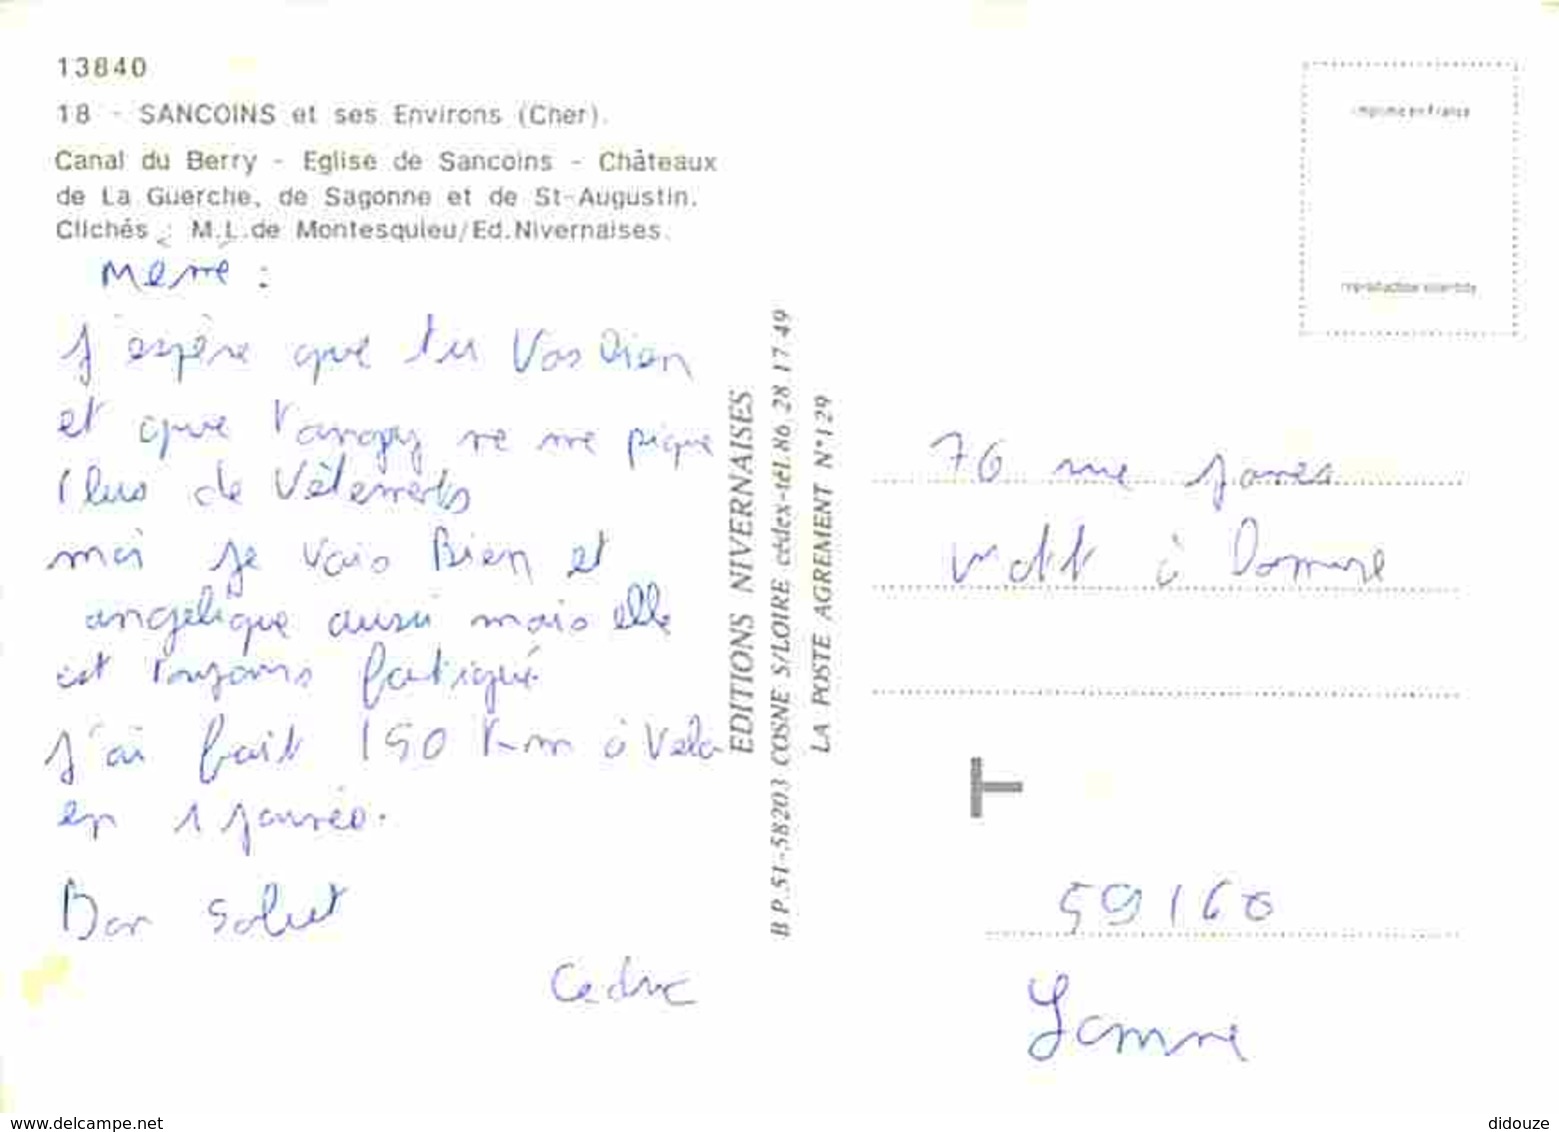 13840
18 - SANCOINS et ses Environs (Cher).
Canal du Berry - Eglise de Sancoins - Châteaux
de La Guerche, de Sagonne et de St-Augustin.
Clichés : M.L.de Montesquieu/Ed.Nivernaises.
Mémé :
J'espère que tu Vas Bien
et que Tanguy ne me pique
Plus de Vêtements
moi je Vais Bien et
angelique aussi mais elle
est Toujours fatiqué
J'ai fait 150 Km à Velo
en 1 journée.
Bon Salut
Cedric
EDITIONS NIVERNAISES
B P.51-58203 COSNE S/LOIRE cédex-tél.86.28.17.49
LA POSTE AGREMENT N°129
Imprimé en France
reproduction interdite
76 rue James
Watt à Lomme
T
59160
Lomme
www.delcampe.net
didouze